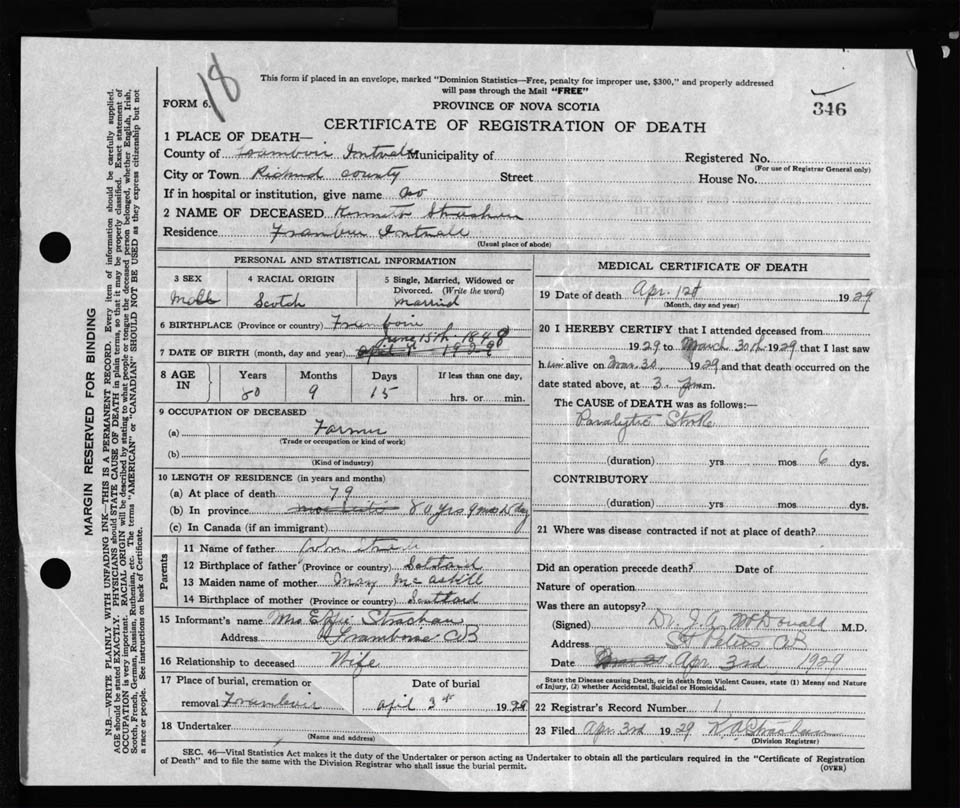 18
This form if placed in an envelope, marked "Dominion Statistics—Free, penalty for improper use, $300," and properly addressed
will pass through the Mail "FREE"
FORM 6.
PROVINCE OF NOVA SCOTIA
346
CERTIFICATE OF REGISTRATION OF DEATH
1 PLACE OF DEATH—
County of Municipality of Registered No.
(For use of Registrar General only)
City or Town Richmd County Street House No.
If in hospital or institution, give name no
2 NAME OF DECEASED
Residence
(Usual place of abode)
PERSONAL AND STATISTICAL INFORMATION
3 SEX
Male
4 RACIAL ORIGIN
Scotch
5 Single, Married, Widowed or
Divorced. (Write the word)
married
6 BIRTHPLACE (Province or country)
June 15th 1848
7 DATE OF BIRTH (month, day and year)
8 AGE
IN
Years Months Days If less than one day,
80 9 15 hrs. or min.
9 OCCUPATION OF DECEASED
(a) Farmer
(Trade or occupation or kind of work)
(b)
(Kind of industry)
10 LENGTH OF RESIDENCE (in years and months)
(a) At place of death 79
(b) In province 80 yrs 9 mos
(c) In Canada (if an immigrant)
Parents
11 Name of father
12 Birthplace of father (Province or country)
13 Maiden name of mother May McAskill
14 Birthplace of mother (Province or country)
15 Informant's name Mrs Effie Strachan
Address Framboise CB
16 Relationship to deceased Wife
17 Place of burial, cremation or
removal
Date of burial
April 3rd 1929
18 Undertaker
(Name and address)
MEDICAL CERTIFICATE OF DEATH
19 Date of death Apr. 1st 1929
(Month, day and year)
20 I HEREBY CERTIFY that I attended deceased from
1929 to March 30th 1929 that I last saw
him alive on Mar. 30 1929 and that death occurred on the
date stated above, at 3 p.m.
The CAUSE of DEATH was as follows:—
Paralytic Stroke
(duration) yrs mos 6 dys.
CONTRIBUTORY
(duration) yrs mos dys.
21 Where was disease contracted if not at place of death?
Did an operation precede death? Date of
Nature of operation
Was there an autopsy?
(Signed) Dr. J. A. McDonald M.D.
Address St Peters CB
Date Apr 3rd 1929
State the Disease causing Death, or in death from Violent Causes, state (1) Means and Nature
of Injury, (2) whether Accidental, Suicidal or Homicidal.
22 Registrar's Record Number 1
23 Filed Apr 3rd 1929 K A Strachan
(Division Registrar)
SEC. 46—Vital Statistics Act makes it the duty of the Undertaker or person acting as Undertaker to obtain all the particulars required in the "Certificate of Registration
of Death" and to file the same with the Division Registrar who shall issue the burial permit.
(OVER)
MARGIN RESERVED FOR BINDING
N.B.—WRITE PLAINLY WITH UNFADING INK—THIS IS A PERMANENT RECORD. Every item of information should be carefully supplied.
AGE should be stated EXACTLY. PHYSICIANS should STATE CAUSE OF DEATH in plain terms, so that it may be properly classified. Exact statement of
OCCUPATION is very important. RACIAL ORIGIN will be described by stating to what people or tongue the deceased person belonged, whether English, Irish,
Scotch, French, German, Russian, Ruthenian, etc. The terms "AMERICAN" or "CANADIAN" SHOULD NOT BE USED as they express citizenship but not
a race or people. See instructions on back of Certificate.